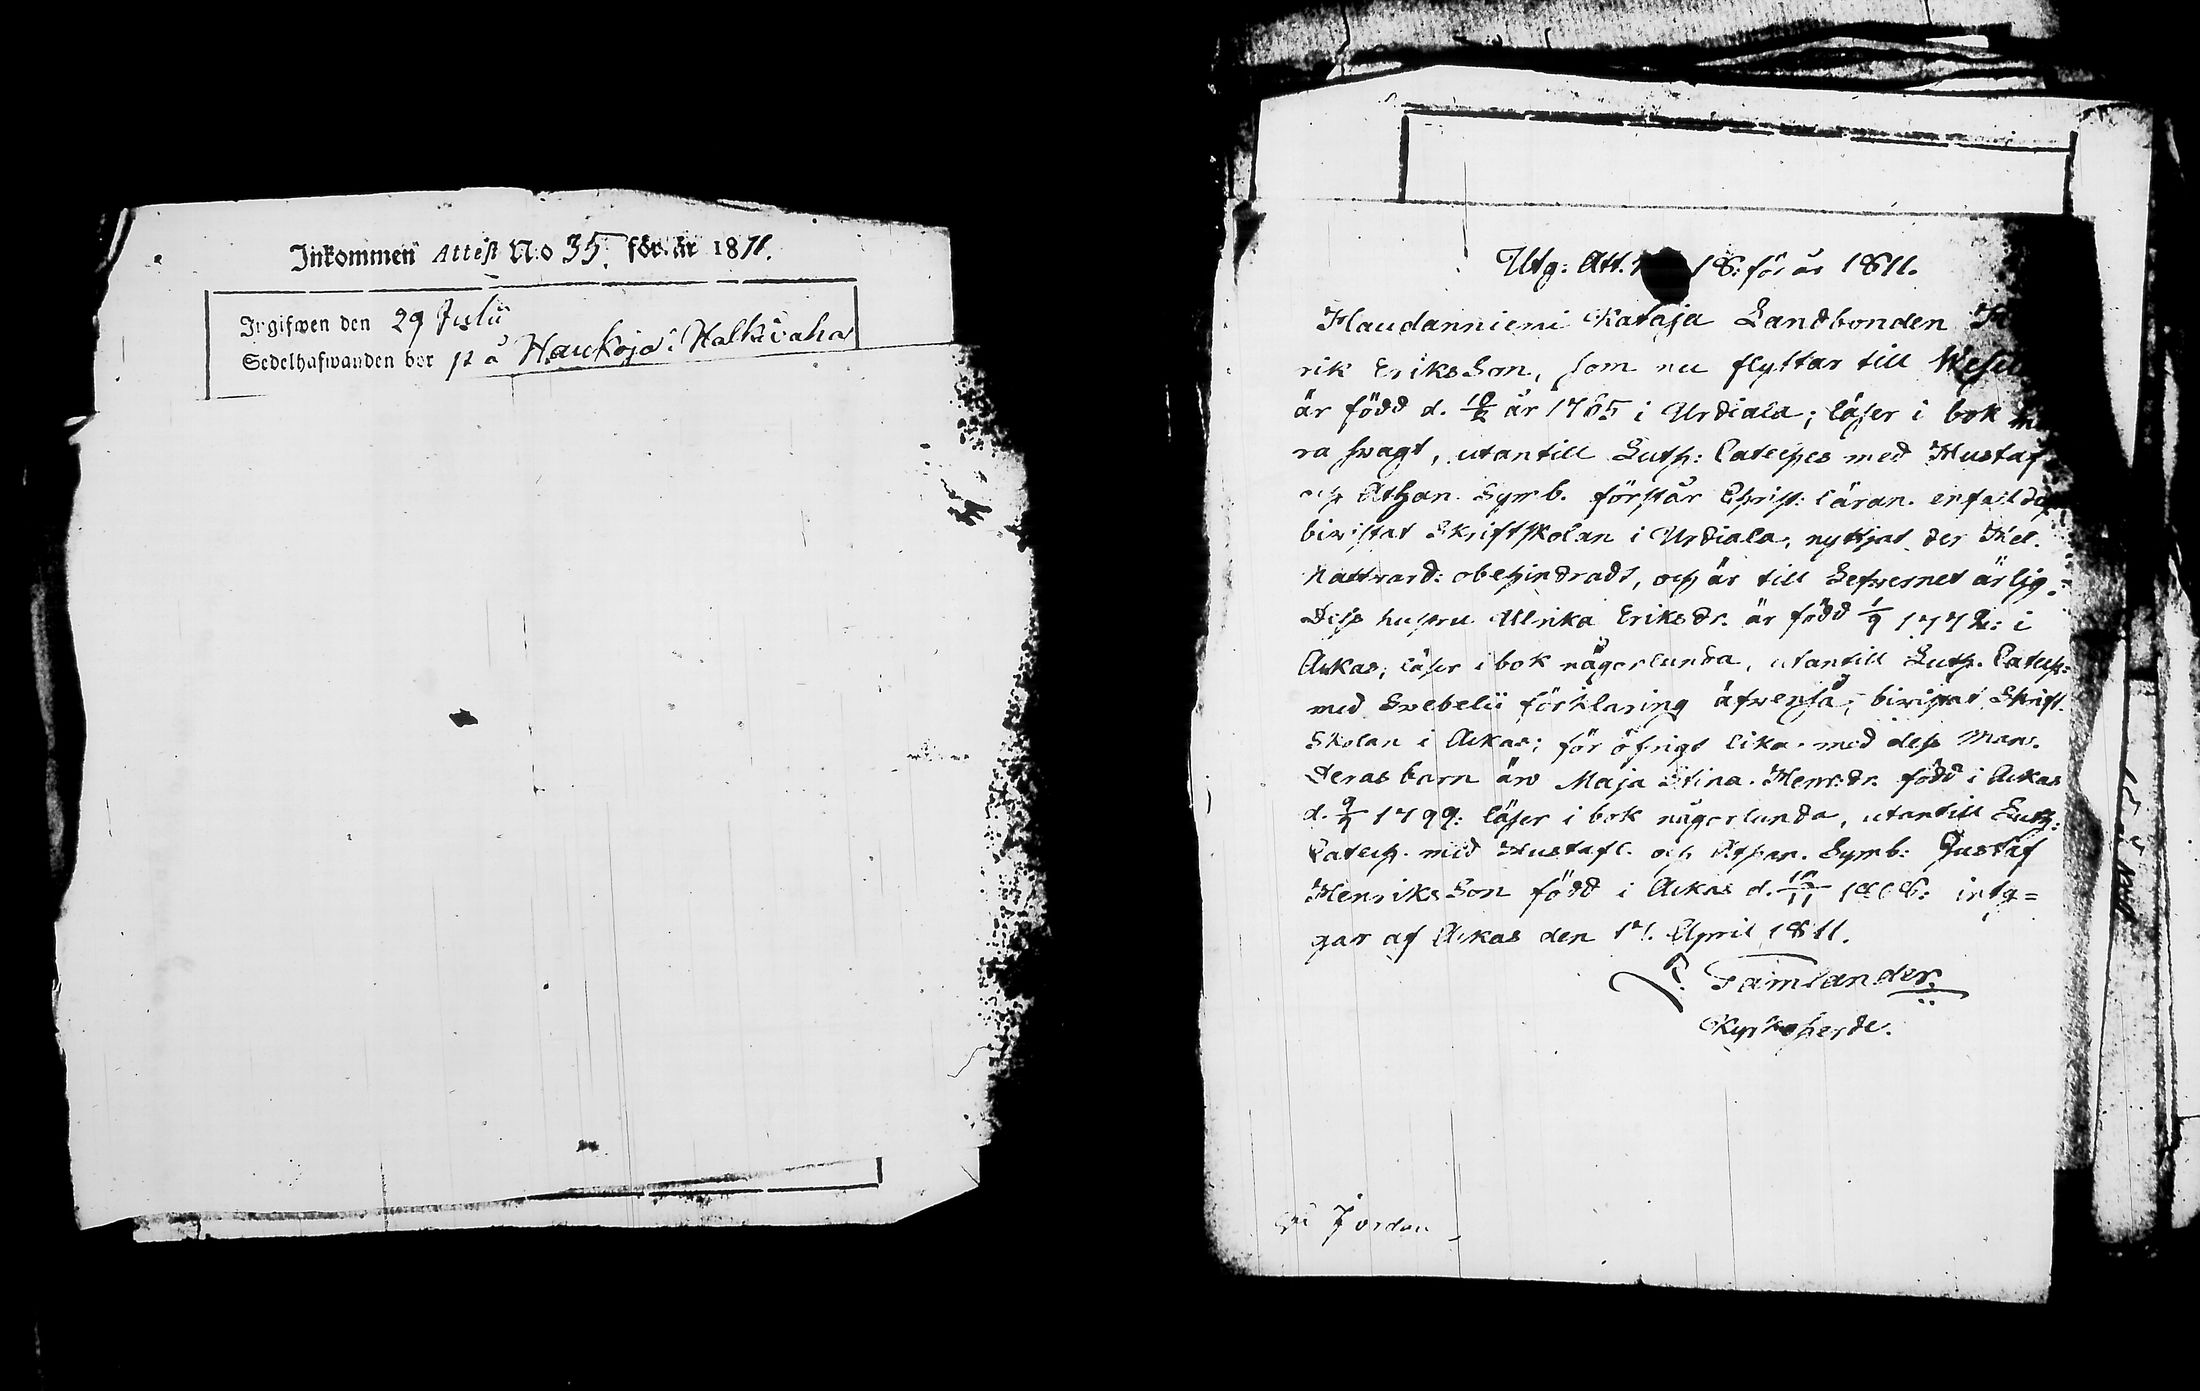 Inkommen Attest N:o 35. för år 1811.
Ingifwen den 29 Julii
Sedelhafwanden bor på Haukoja i Halkivaha
Utg: Att. 18: för år 1811.
Haudanniemi Kataja Landbonden
rik Eriksson, som nu flyttar till Wesi
är född d. år 1765 i Urdiala; läser i bok
ra swagt, utantill Luth: Cateches med Hustafl
och Athan. Symb. förstår Christ: läran.
biwistat Skriftskolan i Urdiala, nyttjat der Hel.
Nattvard: obehindradt, och är till Lefwernet ärlig.
Dess hustru Ulrika Eriksdr. är född 1/9 1772: i
Ackas, läser i bok någorlunda, utantill Luth. Catech:
med Svebelii förklaring äfwenså; biwistat Skrift
Skolan i Ackas; för öfrigt lika med dess Man.
Deras barn äro Maja Stina Henr:dr. född i Ackas
d. 9/9 1799: läser i bok någorlunda, utantill Luth:
Catech. med Hustafl. och Athan. Symb: Gustaf
Henriksson född i Ackas d. 1808: inty=
gar af Ackas den 17. April 1811.
Tamlander.
Kyrkoherde.
Jordan